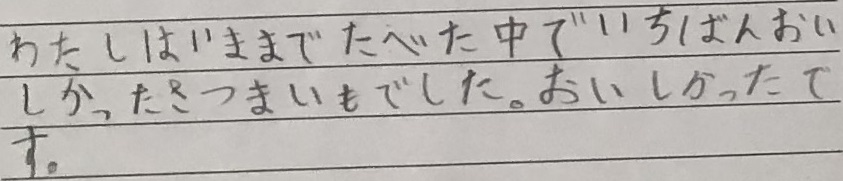 わたしはいままでたべた中でいちばんおい
しかったさつまいもでした。おいしかったで
す。